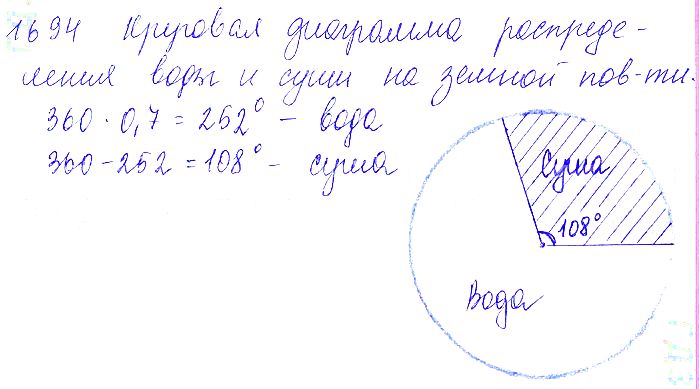 1694 Круговая диаграмма распреде-
ления воды и суши на земной пов-ти.
360 · 0,7 = 252° – вода
360 – 252 = 108° – суша
Суша
108°
Вода